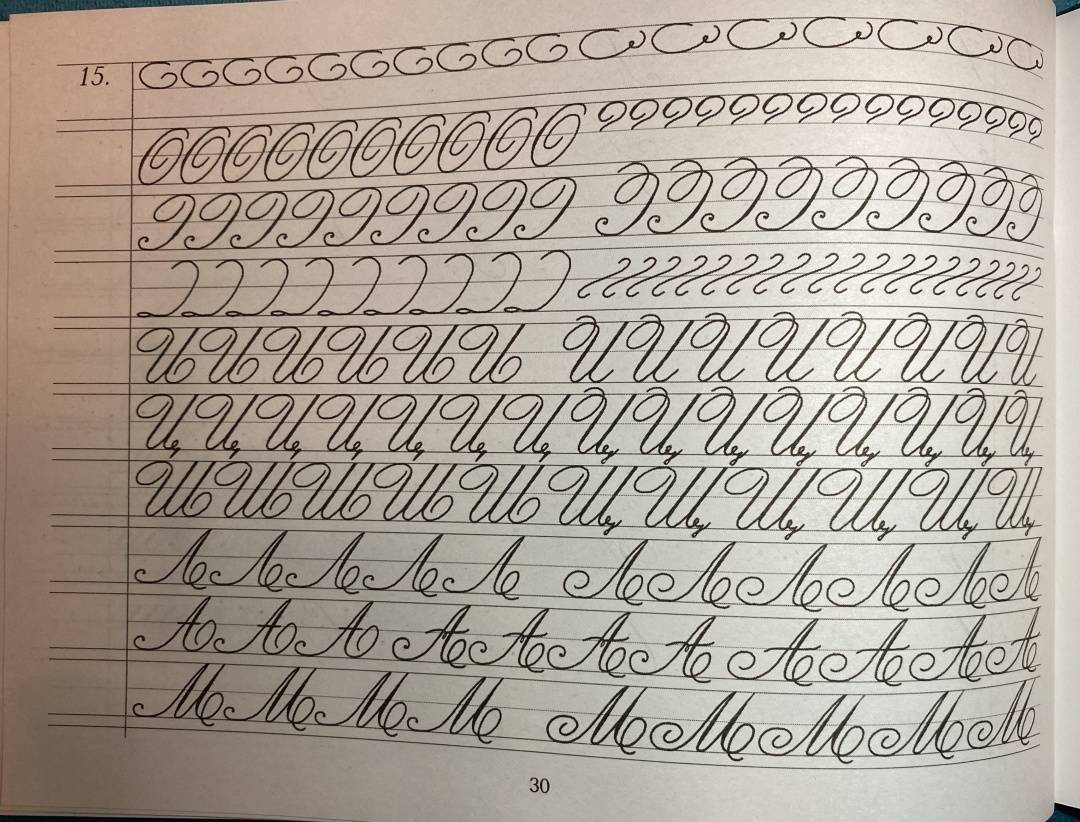 15.
И И И И И И И И И И И И И И
Ц Ц Ц Ц Ц Ц Ц Ц Ц Ц Ц Ц Ц Ц Ц
Ш Ш Ш Ш Ш Щ Щ Щ Щ Щ Щ
Л Л Л Л Л Л Л Л Л Л Л
А А А А А А А А А А А
М М М М М М М М М
30